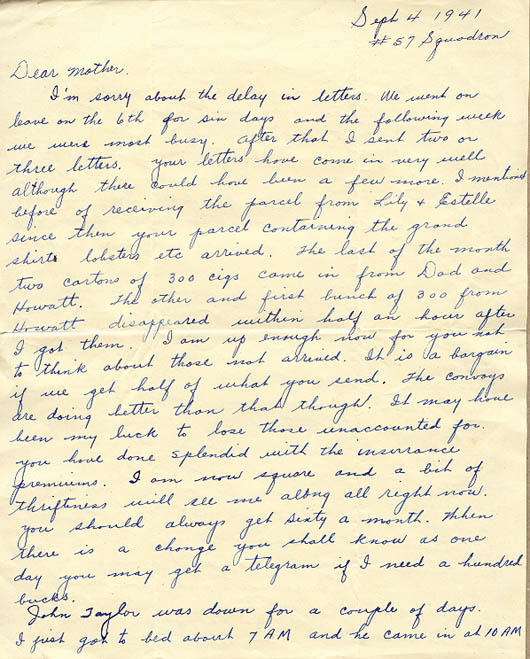 Sept 4 1941
#57 Squadron
Dear Mother.
I'm sorry about the delay in letters. We went on
leave on the 6th for six days and the following week
we were most busy. After that I sent two or
three letters. your letters have come in very well
although there could have been a few more. I mentioned
before of receiving the parcel from Lily + Estelle
since then your parcel containing the grand
shirts lobsters etc arrived. The last of the month
two cartons of 300 cigs came in from Dad and
Howatt. The other and first bunch of 300 from
Howatt disappeared within half an hour after
I got them. I am up enough now for you not
to think about those not arrived. It is a bargain
if we get half of what you send. The convoys
are doing better than that though. It may have
been my luck to lose those unaccounted for.
you have done splendid with the insurance
premiums. I am now square and a bit of
thriftiness will see me along all right now.
you should always get sixty a month. When
there is a change you shall know as one
day you may get a telegram if I need a hundred
bucks.
John Taylor was down for a couple of days.
I just got to bed about 7 AM and he came in at 10 AM